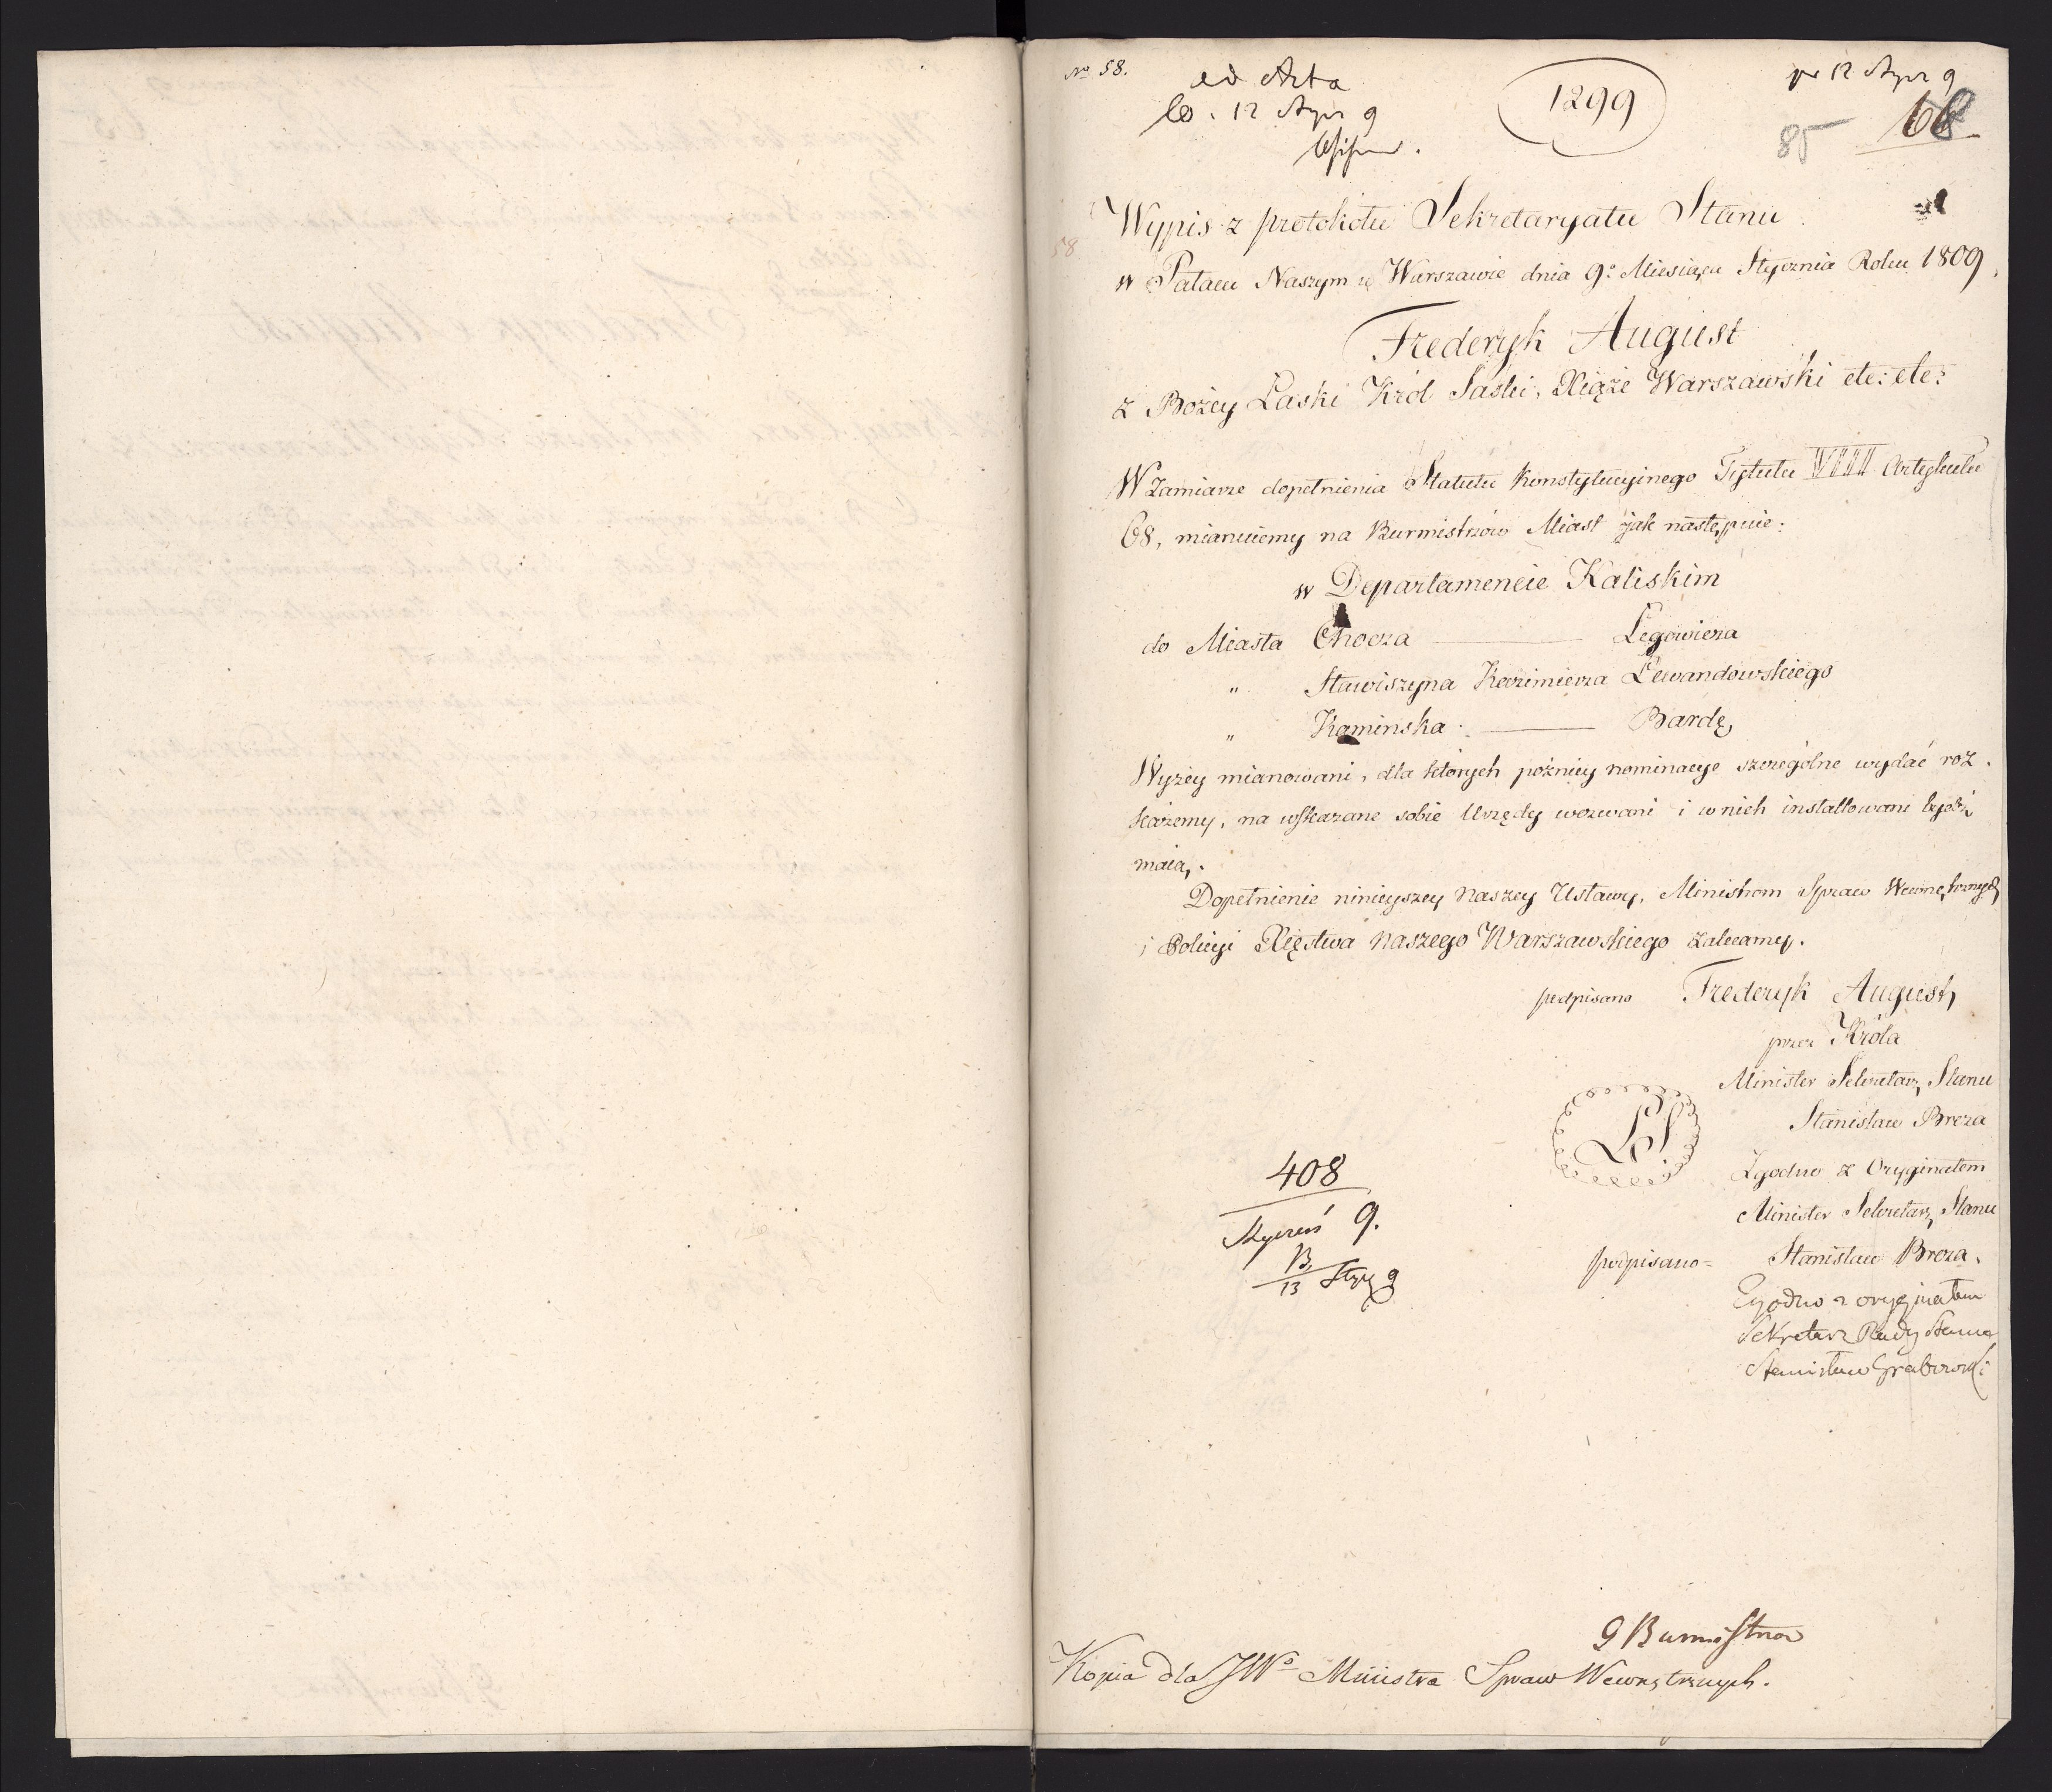 No 58.
ad Acta
1299
85
68
Wypis z protokołu Sekretaryatu Stanu
58
w Pałacu Naszym w Warszawie dnia 9o Miesiąca Stycznia Roku 1809.
Frederyk August
z Bożey Łaski Król Saski, Xiąże Warszawski etc: etc:
W Zamiarze dopełnienia Statutu Konstytucyinego Tytułu VIII Artykułu
68, mianuiemy na Burmistrzów Miast jak następuie:
w Departamencie Kaliskim
do Miasta Chocza — Legowicza
" Stawiszyna Kazimierza Lewandowskiego
" Kaminska — Bardę
Wyżey mianowani, dla których poźniey nominacye szczególne wydać roz-
każemy, na wskazane sobie Urzędy wezwani i w nich installowani bydź
maią.
Dopełnienie ninieyszey Naszey Ustawy, Ministrom Spraw Wewnętrznych
i Policyi Xięstwa Naszego Warszawskiego zalecamy.
podpisano Frederyk August
przez Króla
Minister Sekretarz Stanu
LS
Stanisław Breza
Zgodno z Oryginałem
408
Minister Sekretarz Stanu
Styczeń 9.
podpisano = Stanisław Breza.
B
13 Stycz 9
Zgodno z oryginałem
Sekretarz Rady Stanu
Stanisław Grabowski
9 Burmistrza
Kopia dla JWo Ministra Spraw Wewnętrznych.